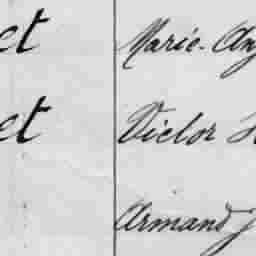 ct Marie-Ang
et Victor
Armand J